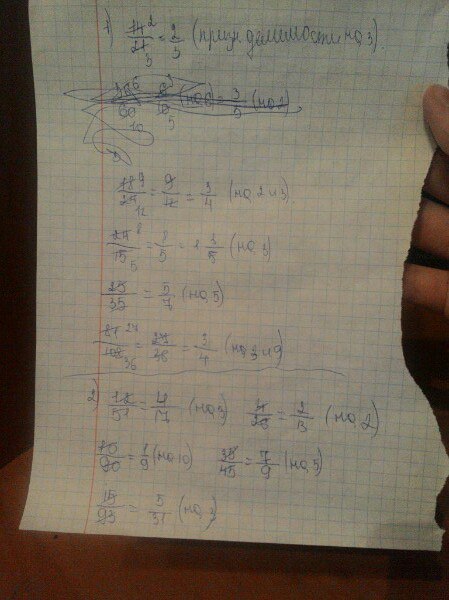 1) 14/21 2/3 = 2/3 (призн. делимости на 3).
18/24 9/12 = 9/12 = 3/4 (на 2 и 3)
24/15 8/5 = 8/5 = 1 3/5 (на 3)
25/35 = 5/7 (на 5)
81/108 27/36 = 27/36 = 3/4 (на 3 и 9)
2) 12/51 = 4/17 (на 3) 4/26 = 2/13 (на 2)
10/90 = 1/9 (на 10) 35/45 = 7/9 (на 5)
15/93 = 5/31 (на 3)